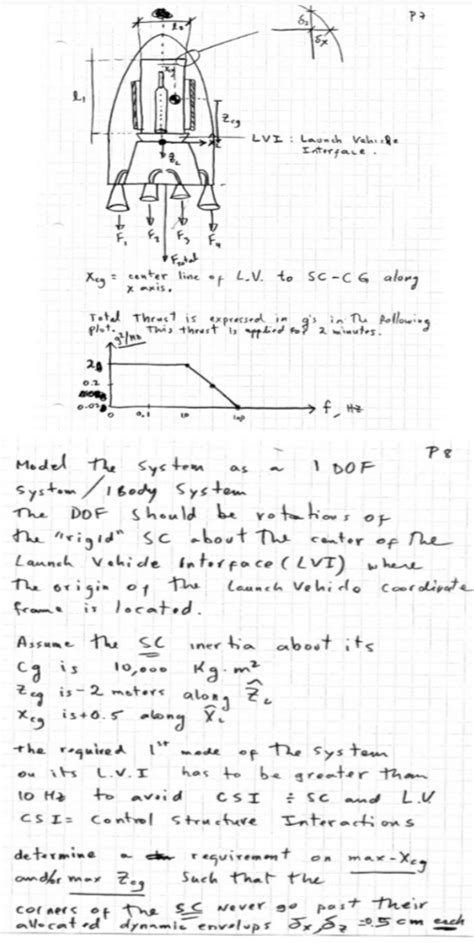 P7
l₂
δz
δx
xcg
l₁
Zcg
x
LVI : Launch Vehicle
Interface.
ẑL
F₁ F₂ F₃ F₄
Ftotal
Xcg = center line of L.V. to SC-CG along
x axis.
Total Thrust is expressed in g's in The following
plot. This thrust is applied for 2 minutes.
g²/Hz
2
0.2
0.02
0 0.1 10 100
f, Hz
P8
Model the system as a 1 DOF
system / 1 Body System
The DOF should be rotations of
the "rigid" SC about the center of the
Launch Vehicle Interface (LVI) where
The origin of the Launch Vehicle coordinate
frame is located.
Assume the SC inertia about its
Cg is 10,000 Kg.m²
Zcg is -2 meters along ẐL
Xcg is +0.5 along X̂L
the required 1st mode of the system
on its L.V.I has to be greater than
10 Hz to avoid CSI ÷ SC and L.V.
CSI = Control Structure Interactions
determine a requirement on max-Xcg
and/or max Zcg such that the
corners of the SC never go past their
allocated dynamic envelops δx, δz = 0.5 cm each